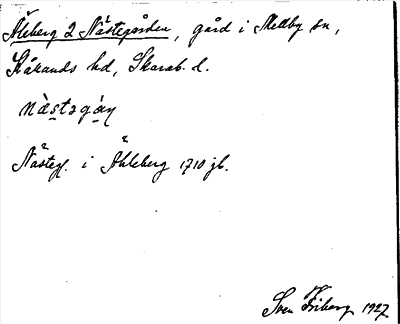 Åleberg 2 Nästegården, gård i Mellby sn,
Kållands hd, Skarab. l.
nàstəgán
Nästeg. i Åhleberg 1710 jb.
Sven Friberg 1927.